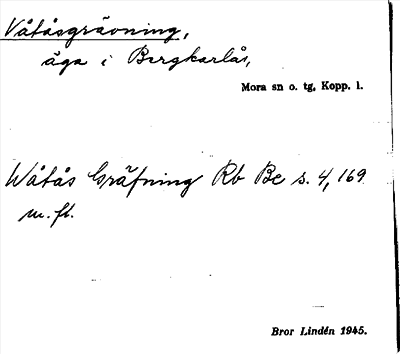 Våtåsgrävning,
äga i Bergkarlås,
Mora sn o. tg, Kopp. l.
Wåtås Gräfning Rb Be s. 4, 169
m. fl.
Bror Lindén 1945.